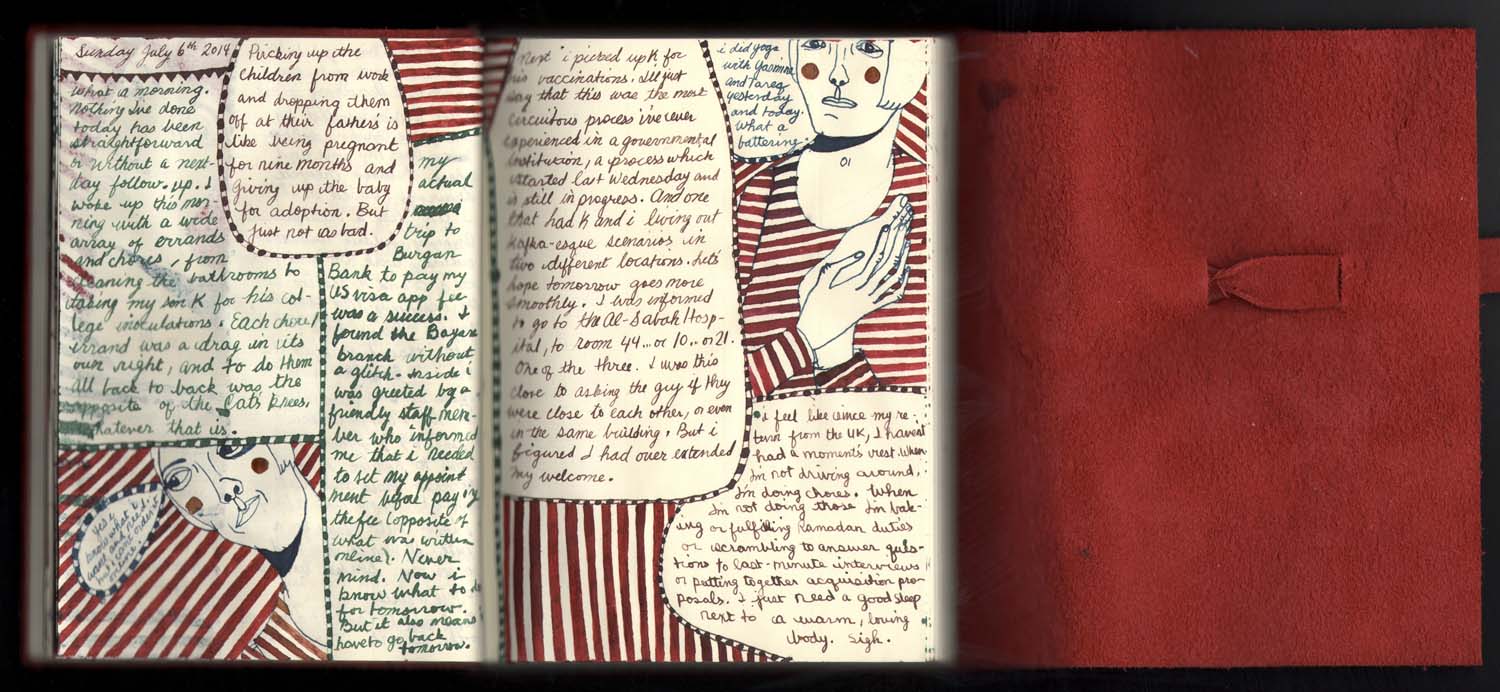 Sunday July 6th 2014
what a morning.
Nothing I've done
today has been
straightforward
or without a next-
day follow-up. I
woke up this mor-
ning with a wide
array of errands
and chores, from
cleaning the bathrooms to
taking my son K for his col-
lege inoculations. Each chore/
errand was a drag in its
own right, and to do them
all back to back was the
opposite of the Cat's Knees,
whatever that is.
Picking up the
children from work
and dropping them
off at their father's is
like being pregnant
for nine months and
giving up the baby
for adoption. But
just not as bad.
my
actual
trip to
Burgan
Bank to pay my
US visa app fee
was a success. I
found the Bayan
branch without
a glitch. Inside i
was greeted by a
friendly staff mem-
ber who informed
me that i needed
to set my appoint
ment before paying
the fee (opposite of
what was written
online). Never
mind. Now i
know what to do
for tomorrow.
But it also means i
have to go back
tomorrow.
yes i
know what i
want and need.
not
time order.
Next i picked up K for
his vaccinations. I'll just
say that this was the most
circuitous process i've ever
experienced in a governmental
institution, a process which
started last Wednesday and
is still in progress. And one
that had K and i living out
Kafka-esque scenarios in
two different locations. Let's
hope tomorrow goes more
smoothly. I was informed
to go to the Al-Sabah Hosp-
ital, to room 44... or 10... or 21.
One of the three. I was this
close to asking the guy if they
were close to each other, or even
in the same building. But i
figured I had over extended
my welcome.
i did yoga
with Yasmine
and Tareq
yesterday
and today.
What a
battering.
i feel like since my re-
turn from the UK, I haven't
had a moment's rest. When
I'm not driving around,
I'm doing chores. When
I'm not doing those I'm bak-
ing or fulfilling Ramadan duties
or scrambling to answer ques-
tions to last-minute interviews
or putting together acquisition pro-
posals. I just need a good sleep
next to a warm, loving
body. Sigh.